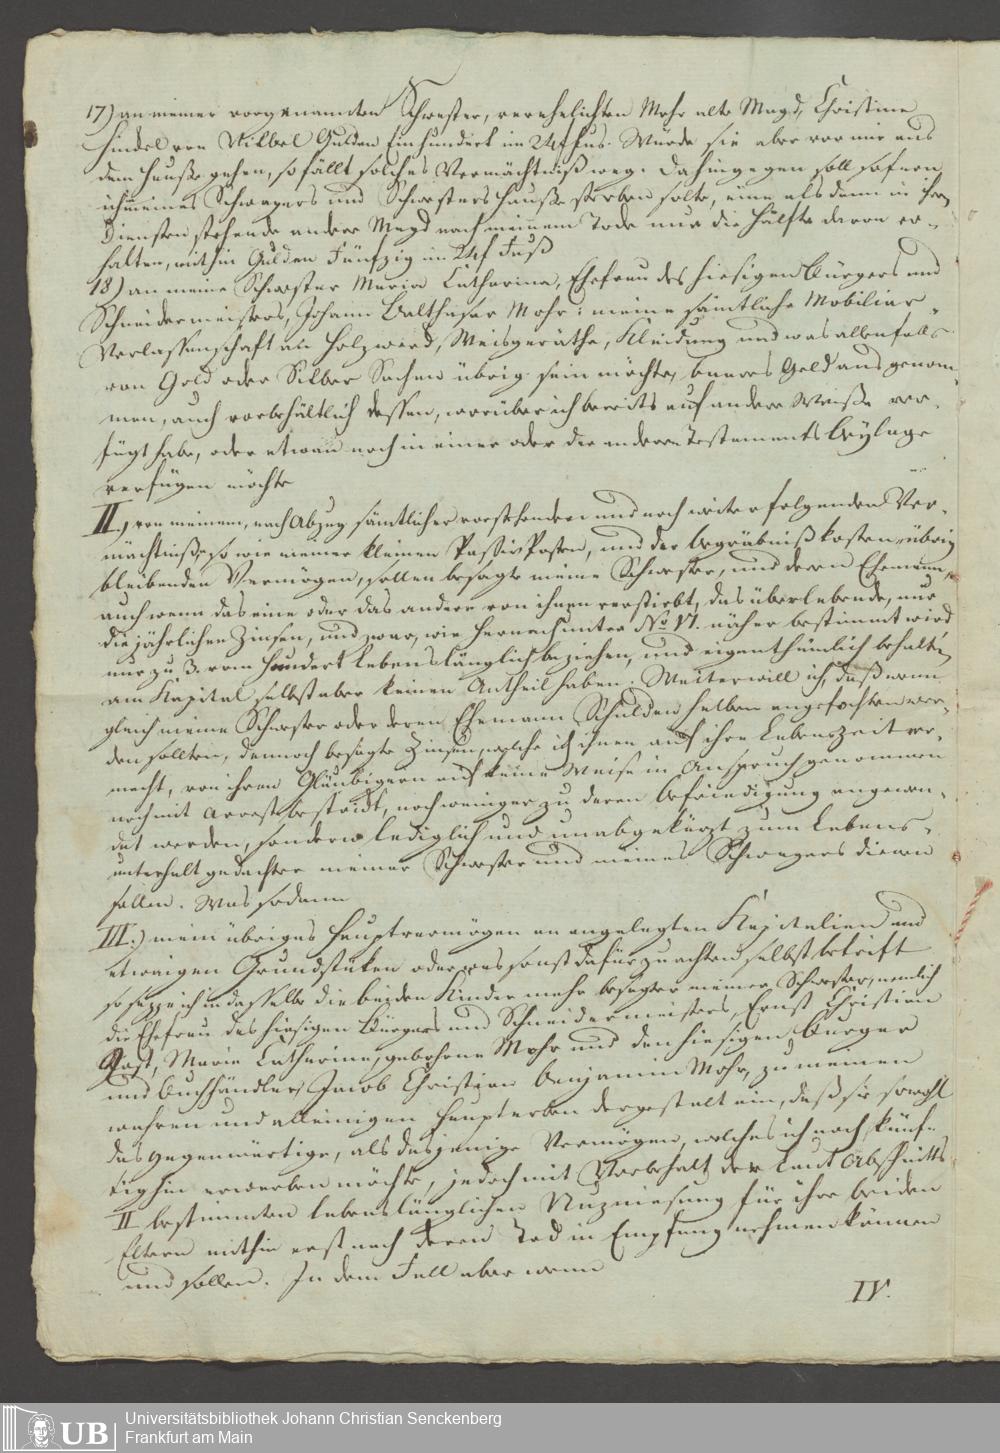 17) an meiner vorgenannten Schwester, verehelichten Mohr alte Magd, Christine
Hindel von Vilbel Gulden Einhundert im 24 f fus. Würde sie aber vor mir aus
dem Hause gehen, so fällt solches Vermächtniß weg. Dahingegen soll sofern
ich in meines Schwagers und Schwesters Hause sterben solte, eine alsdann in ihren
Diensten stehende andere Magd nach meinem Tode nur die Hälfte davon er-
halten, mithin Gulden Fünfzig im 24 f Fuß
18) an meine Schwester Maria Catharina, Ehefrau des hiesigen Bürgers und
Schneidermeisters, Johann Balthasar Mohr: meine sämtliche Mobiliar-
Verlassenschaft an Holzwerk, Weisgeräthe, Kleidung und was allenfalls
von Gold oder Silber Sachen übrig sein möchte, baares Geld ausgenom-
men, auch vorbehältlich dessen, worüber ich bereits auf andere Weise ver-
fügt habe, oder etwan noch in einer oder der anderen Testaments Beylage
verfügen möchte
II.) von meinem, nach Abzug sämtlicher vorstehenden und noch weiter folgenden Ver-
mächtniße, so wie meiner kleinen PassivPosten, und der Begräbnißkosten, übrig
bleibenden Vermögen, sollen besagte meine Schwester, und deren Ehemann,
auch wenn das eine oder das andere von ihnen verstirbt, das überlebende, nur
die jährlichen Zinsen, und zwar, wie hernach unter No. VI. näher bestimmt wird
nur zu 3. vom Hundert lebenslänglich beziehen, und eigenthümlich behalten,
am Kapital selbst aber keinen Antheil haben. Weiter will ich, daß wenn
gleich meine Schwester oder deren Ehemann Schulden halben angefochten wer-
den sollten, dennoch besagte Zinsen, welche ich ihnen auf ihre Lebenszeit ver-
macht, von ihren Gläubigern auf keine Weise in Anspruch genommen
noch mit Arrest bestrickt, noch weniger zu deren Befriedigung angewen-
det werden, sondern lediglich und unabgekürzt zum Lebens-
unterhalt gedachter meiner Schwester und meines Schwagers dienen
sollen. Was sodann
III.) mein übriges Hauptvermögen an angelegten Kapitalien und
etwaigen Grundstüken oder was sonst dafür zu achten selbst betrift
so seze ich in dasselbe die beiden Kinder mehr besagter meiner Schwester, nemlich
die Ehefrau des hiesigen Bürgers und Schneidermeisters, Ernst Christian
Rast, Maria Catharina, gebohrene Mohr und den hiesigen Burger
und Buchhändler, Jacob Christian Benjamin Mohr, zu meinen
wahren und alleinigen Haupterben dergestalt ein, daß sie sowohl
das gegenwärtige, als dasjenige Vermögen, welches ich noch künf-
tighin erwerben möchte, jedoch mit Vorbehalt der laut Abschnitts
II bestimmten lebenslänglichen Nuzniesung für ihre beiden
Eltern mithin erst nach deren Tod in Empfang nehmen können
und sollen. In dem Fall aber wenn
IV.
UB
Universitätsbibliothek Johann Christian Senckenberg
Frankfurt am Main